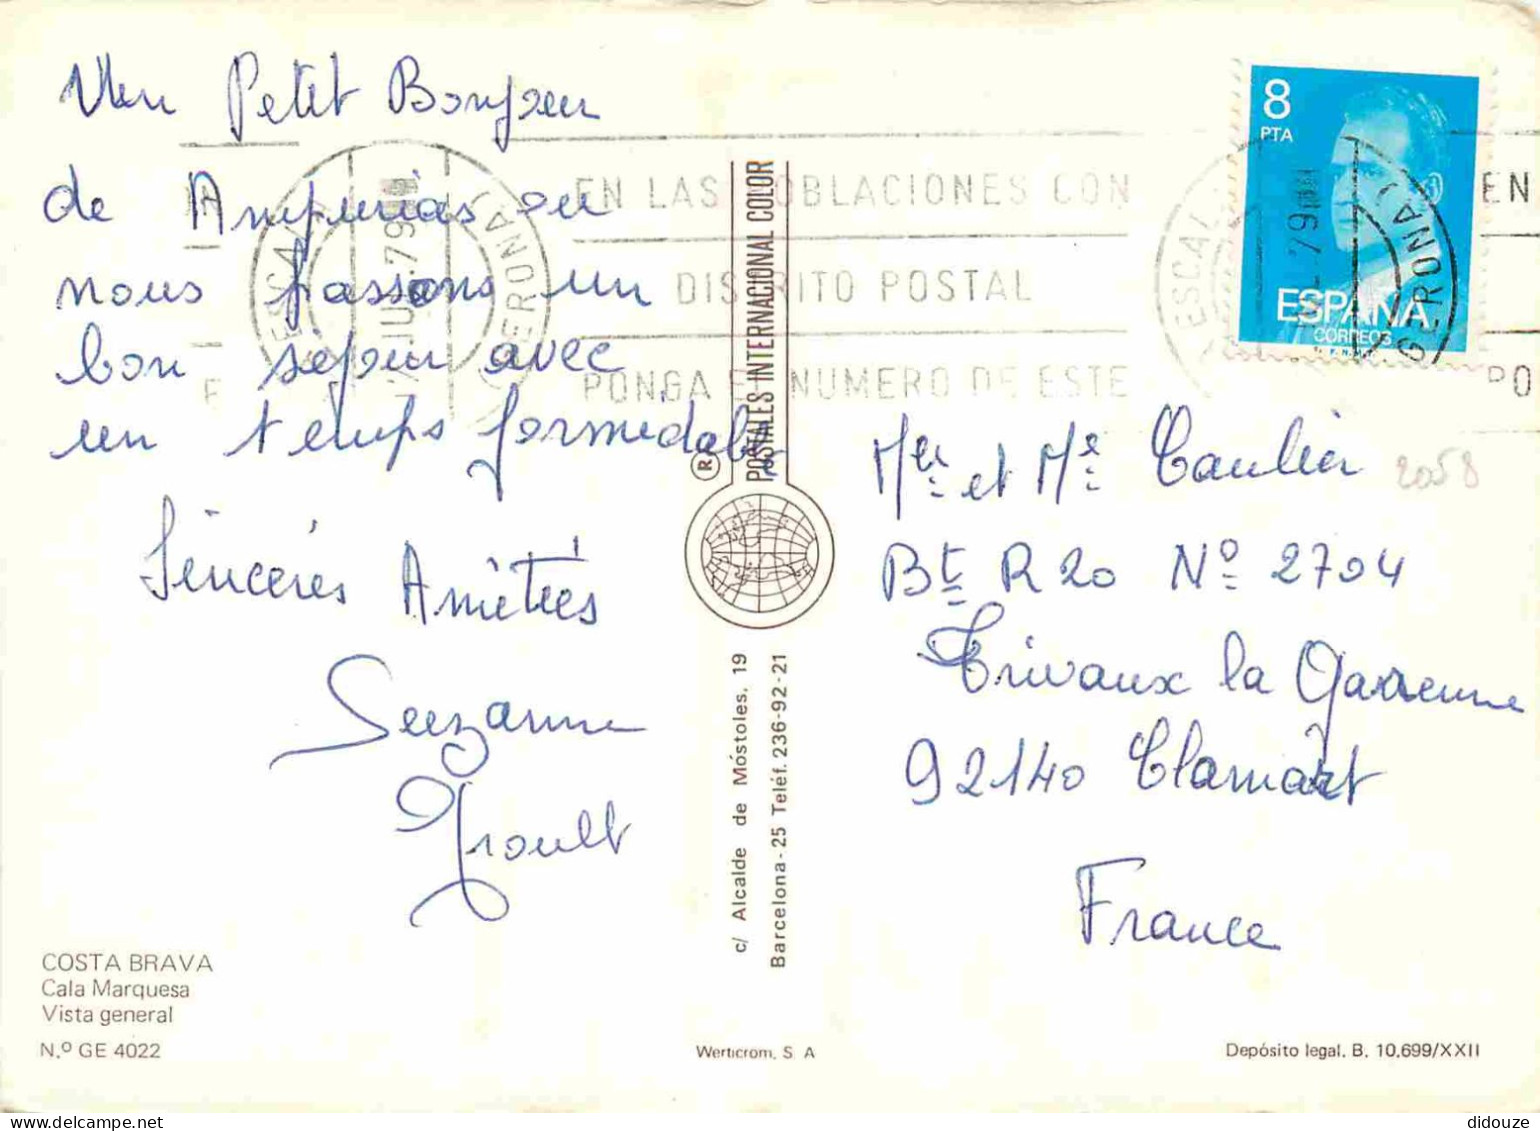 Un Petit Bonjour
de Ampurias ou
nous passons un
bon séjour avec
un temps formidable
Sincéres Amitiés
Suzanne
Groult
COSTA BRAVA
Cala Marquesa
Vista general
N.º GE 4022
EN LAS POBLACIONES CON
DISTRITO POSTAL
PONGA EL NUMERO DE ESTE
JUL.79
(GERONA)
POSTALES INTERNACIONAL COLOR
R
c/ Alcalde de Móstoles, 19
Barcelona-25 Teléf. 236-92-21
Werticrom, S. A
8
PTA
ESPAÑA
CORREOS
F.N.M.T.
JUL.79
(GERONA)
EN
PO
Mr et Me Caulier
2058
Bt R20 Nº 2704
Trivaux la Garenne
92140 Clamart
France
Depósito legal. B. 10.699/XXII
delcampe.net
didouze